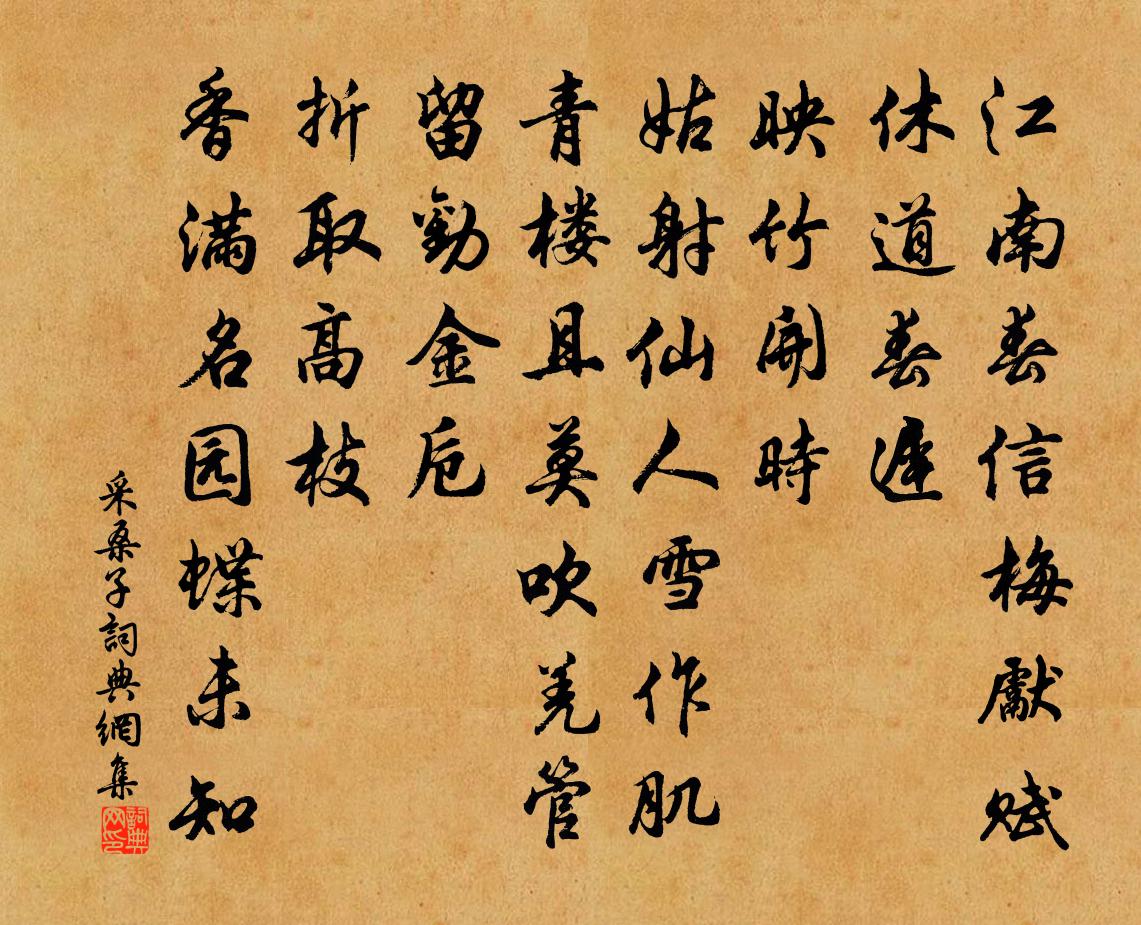 江南春信梅獻赋
休道春遲
映竹開時
姑射仙人雪作肌
青楼且莫吹羌管
留勸金卮
折取高枝
香满名园蝶未知
采桑子詞典網集
詞典网印